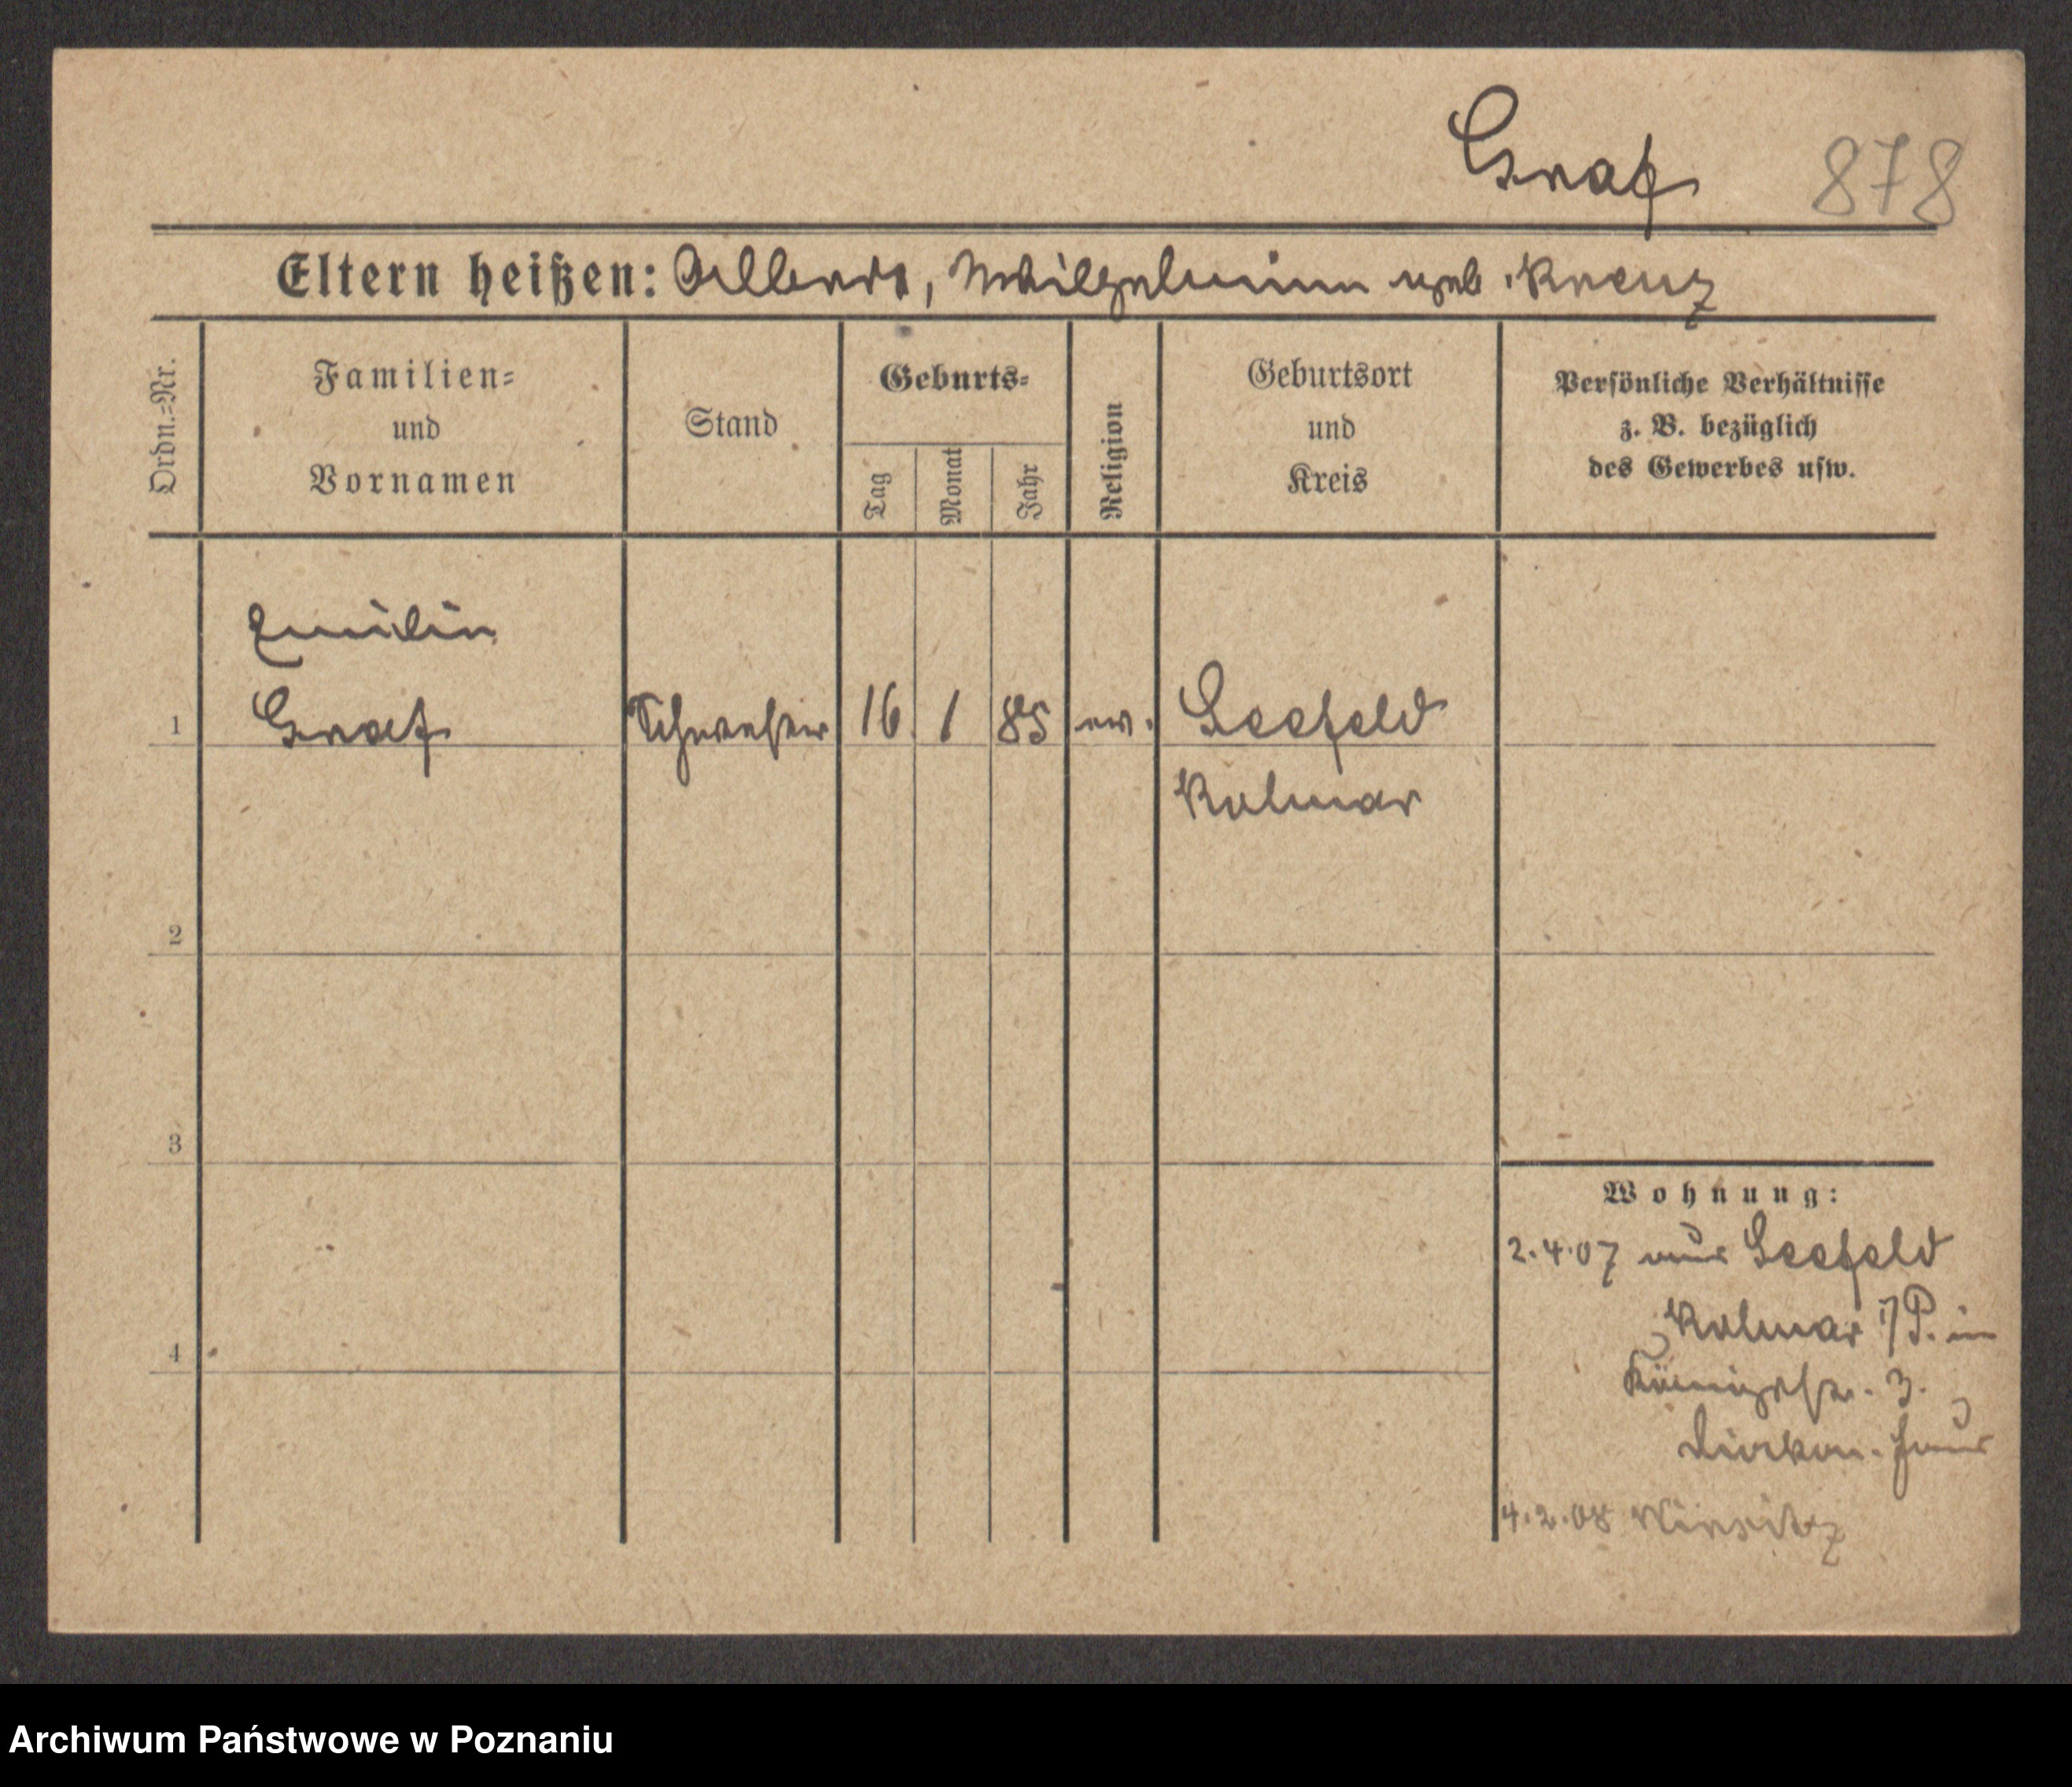 Graf 878
Eltern heißen: Albert, Wilhelmine geb. Kreuz
Ordn.-Nr.
Familien-
und
Vornamen
Stand
Geburts-
Tag
Monat
Jahr
Religion
Geburtsort
und
Kreis
Persönliche Verhältnisse
z. B. bezüglich
des Gewerbes usw.
Emilie
1 Graf Schwester 16 1 85 ev. Seefeld
Kolmar
2
3
Wohnung:
2.4.07 aus Seefeld
Kolmar i/P. in
4
Königstr. 3.
Diakon. Haus
4.2.08 Wirsitz
Archiwum Państwowe w Poznaniu